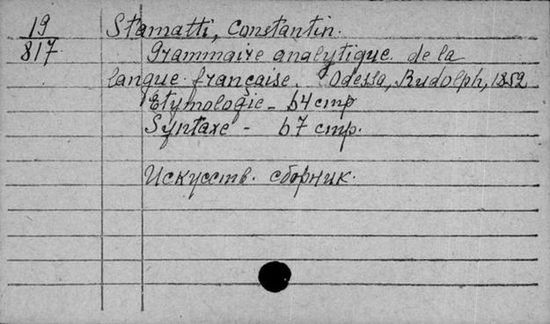 19 Stamatti, Constantin.
817 Grammaire analytique de la
langue française. Odessa, Rudolph, 1852
Etymologie - 64 стр
Syntaxe - 67 стр.
Искусств. сборник.